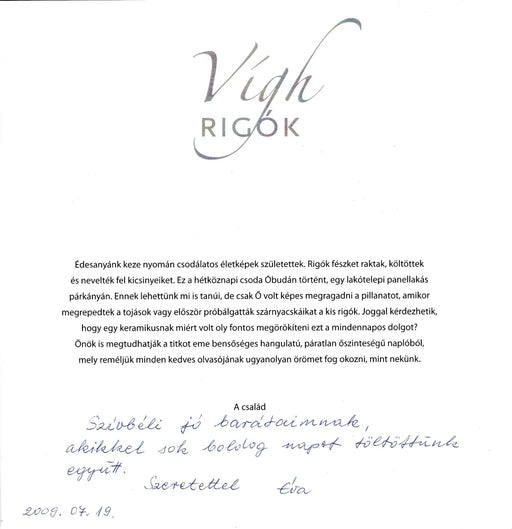 Vígh
RIGÓK
Édesanyánk keze nyomán csodálatos életképek születettek. Rigók fészket raktak, költöttek
és nevelték fel kicsinyeiket. Ez a hétköznapi csoda Óbudán történt, egy lakótelepi panellakás
párkányán. Ennek lehettünk mi is tanúi, de csak Ő volt képes megragadni a pillanatot, amikor
megrepedtek a tojások vagy először próbálgatták szárnyacskáikat a kis rigók. Joggal kérdezhetik,
hogy egy keramikusnak miért volt oly fontos megörökíteni ezt a mindennapos dolgot?
Önök is megtudhatják a titkot eme bensőséges hangulatú, páratlan őszinteségű naplóból,
mely reméljük minden kedves olvasójának ugyanolyan örömet fog okozni, mint nekünk.
A család
Szívbéli jó barátaimnak,
akikkel sok boldog napot töltöttünk
együtt.
Szeretettel Éva
2009. 07. 19.